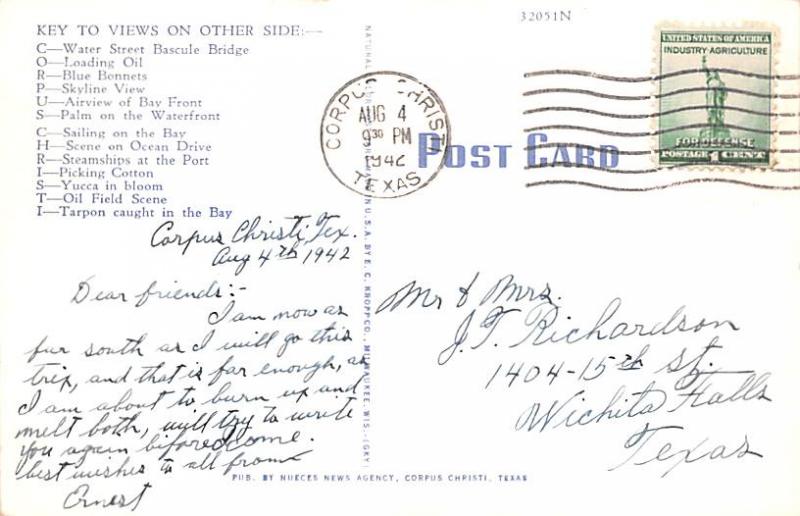 KEY TO VIEWS ON OTHER SIDE:—
C—Water Street Bascule Bridge
O—Loading Oil
R—Blue Bonnets
P—Skyline View
U—Airview of Bay Front
S—Palm on the Waterfront
C—Sailing on the Bay
H—Scene on Ocean Drive
R—Steamships at the Port
I—Picking Cotton
S—Yucca in bloom
T—Oil Field Scene
I—Tarpon caught in the Bay
Corpus Christi, Tex.
Aug 4th 1942
Dear friends:-
I am now as
fur south as I will go this
trix, and that is far enough, as
I am about to burn up and
melt both, will try to write
you again before come.
best wishes to all from
Ernest
32051N
CORPUS CHRISTI
AUG 4
9 30 PM
1942
TEXAS
POST CARD
UNITED STATES OF AMERICA
INDUSTRY·AGRICULTURE
FOR DEFENSE
POSTAGE 1 CENT
Mr & Mrs.
J. T. Richardson
1404-15th St.
Wichita Falls
Texas
U.S.A. BY E. C. KROPP CO., MILWAUKEE, WIS.
PUB. BY NUECES NEWS AGENCY, CORPUS CHRISTI, TEXAS